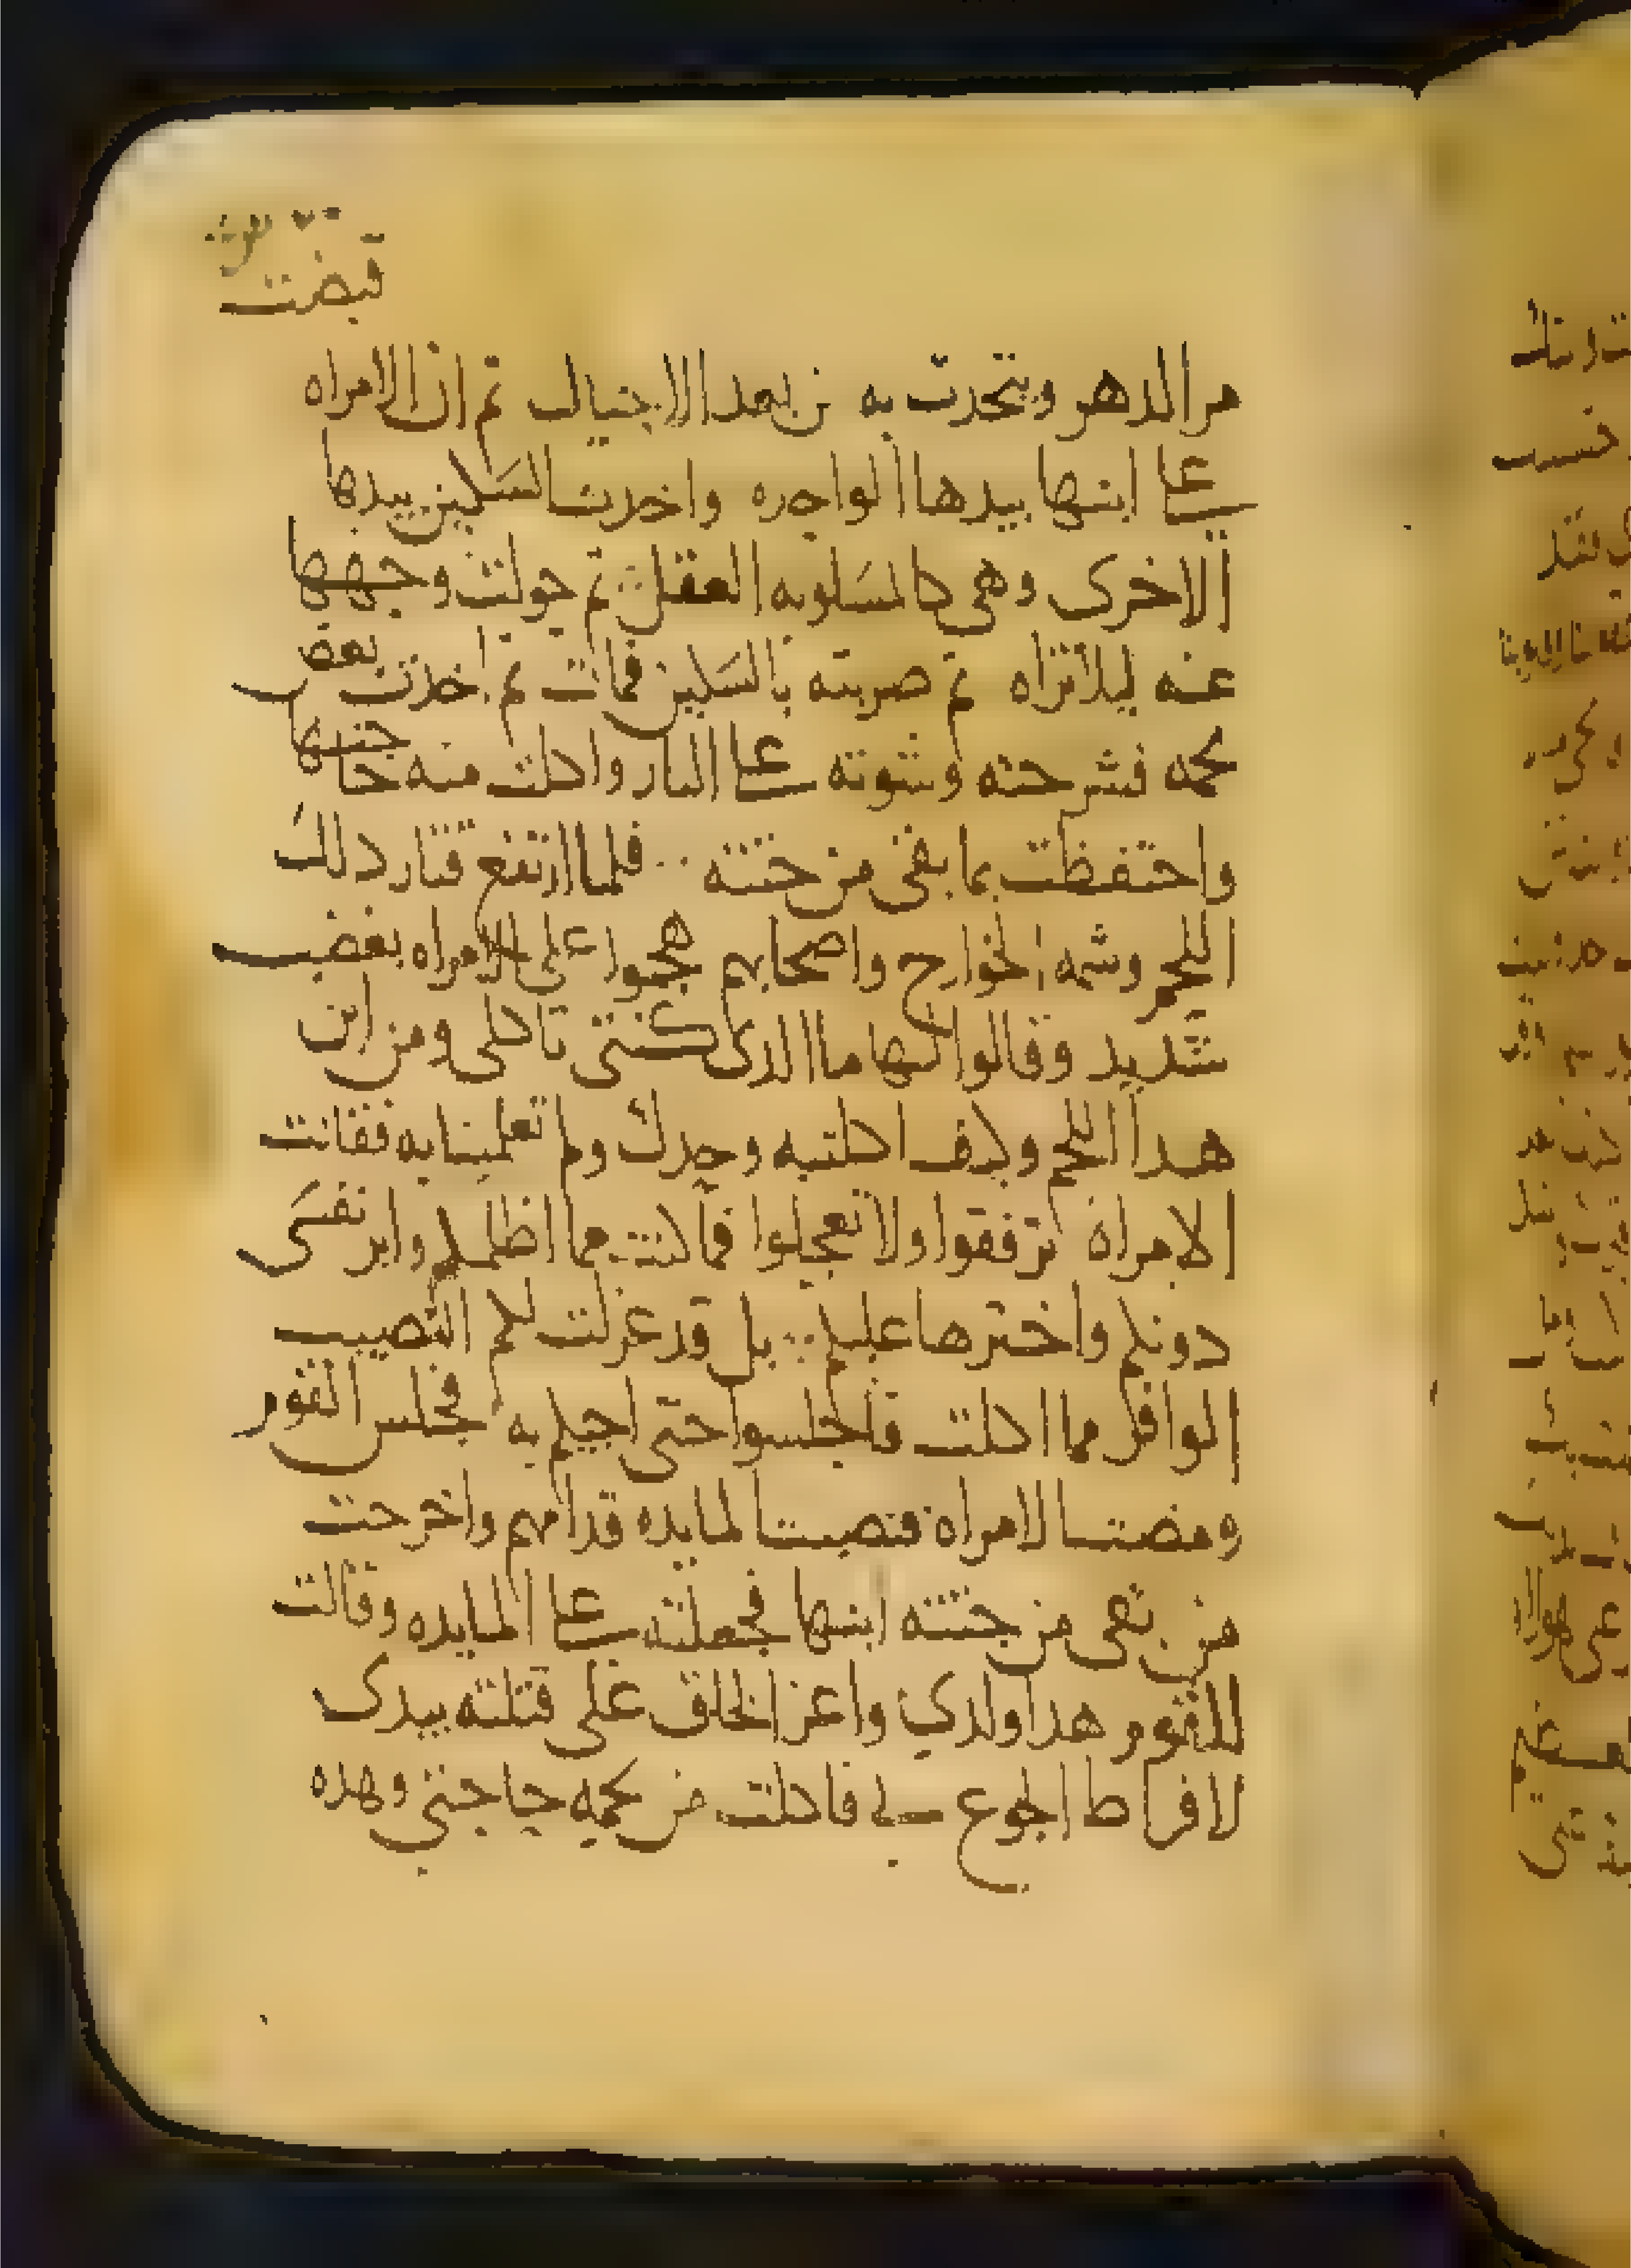 قبضت
مر الدهر ويتحدث به من بعد الاجيال ثم ان الامراه
على ابنها بيدها الواحده واخدت السكين بيدها
الاخرى وهي كالمسلوبه العقل ثم حولت وجهها
عنه ليلا تراه ثم ضربته بالسكين فمات ثم اخدت بعض
لحمه فشرحته وشوته على النار واكلت منه حاجتها
واحتفظت بما بقى من جثته فلما ارتفع قتار دلك
اللحم وشمه الخوارج واصحابهم هجموا على الامراه بغضب
شديد وقالوا لها ما الدى كنتى تاكلى ومن اين
هدا اللحم وكيف اكلتيه وحدك ولم تعلمينا به فقالت
الامراة ترفقوا ولا تعجلوا فما كنت مما اظلمكم واثر نفسى
دونكم واخترها عليكم بل قد عزلت لكم النصيب
الوافر مما اكلت فاجلسوا حتى اجيكم به فجلس القوم
ومضت الامراه فنصبت المايده قدامهم واخرجت
من بقى من جثته ابنها فجعلته على المايده وقالت
للقوم هدا ولدي واعز الخلق على قتلته بيدى
لافراط الجوع بي فاكلت من لحمه حاجتي وهده